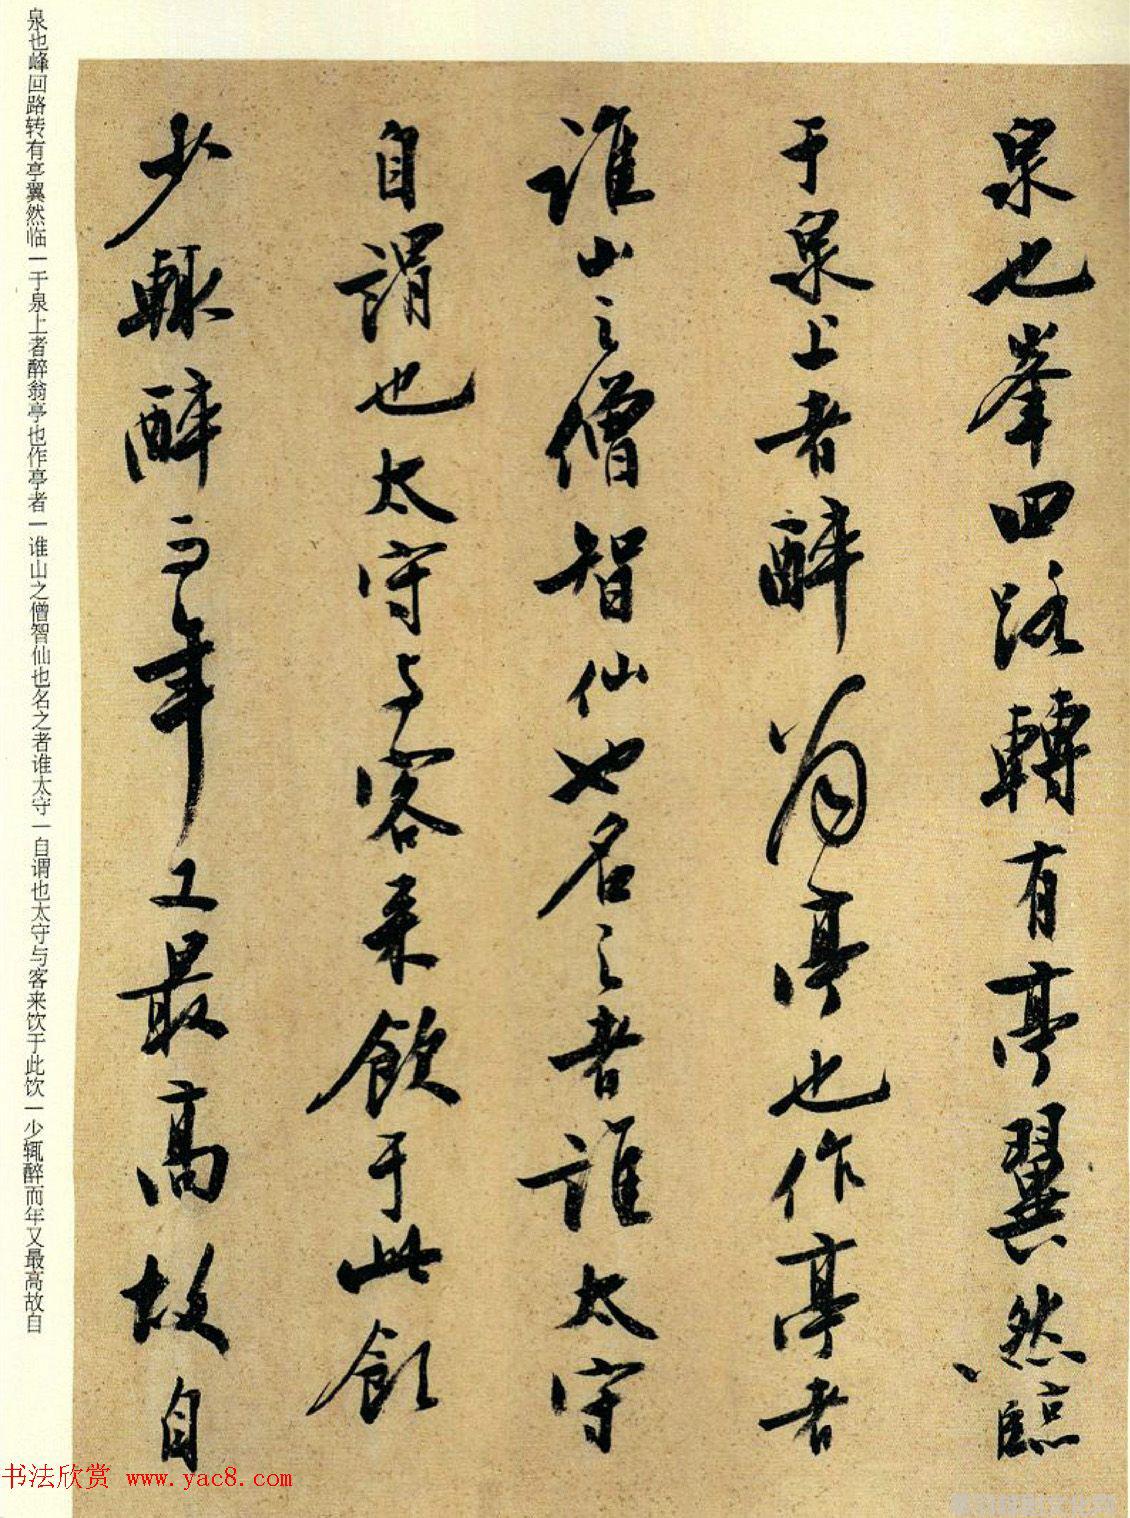 泉也峯回路轉有亭翼然臨
于泉上者醉翁亭也作亭者
誰山之僧智仙也名之者誰太守
自謂也太守与客来飲于此飲
少輒醉而年又最高故自
泉也峰回路转有亭翼然临一于泉上者醉翁亭也作亭者一谁山之僧智仙也名之者谁太守一自谓也太守与客来饮于此饮一少辄醉而年又最高故自
书法欣赏 www.yac8.com